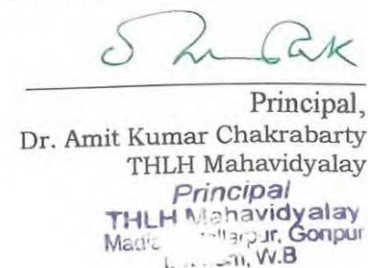 Principal,
Dr. Amit Kumar Chakrabarty
THLH Mahavidyalay
Principal
THLH Mahavidyalay
W.B